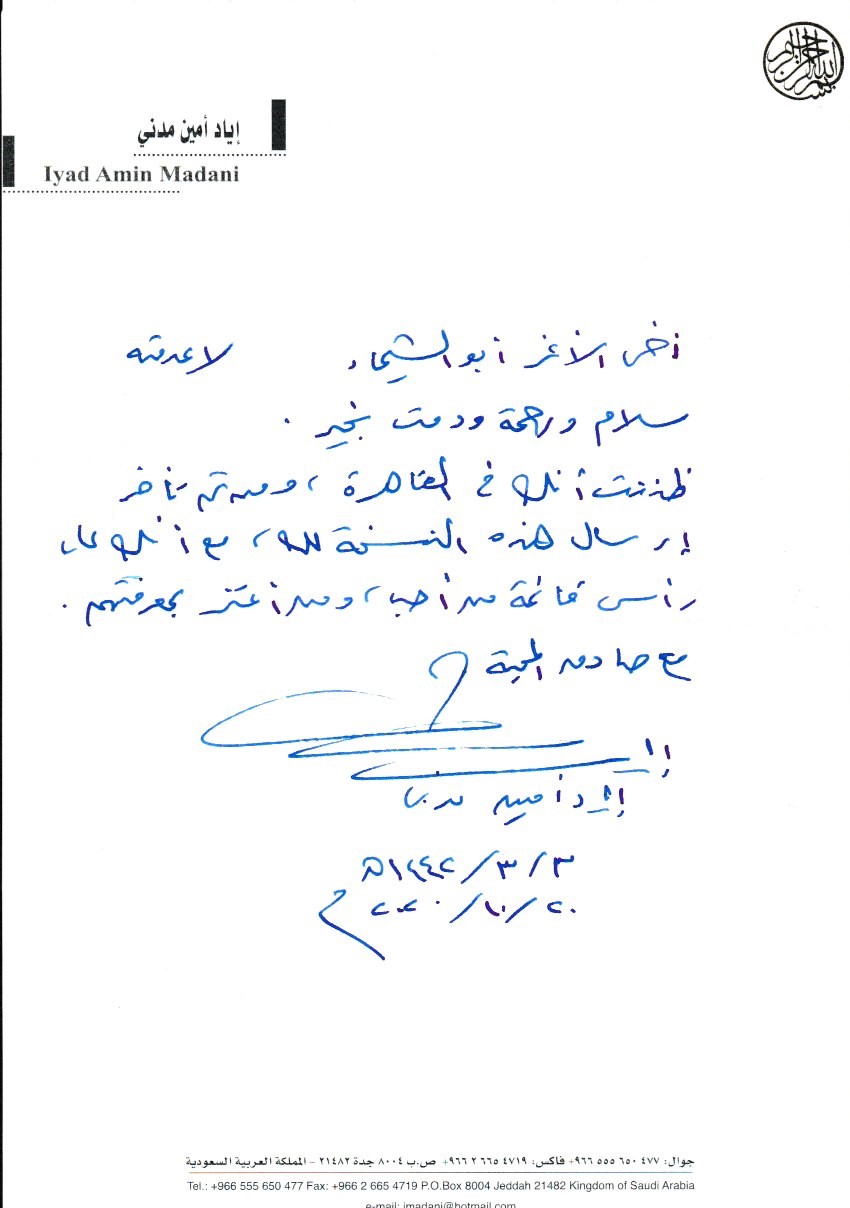 بسم الله الرحمن الرحيم
إياد أمين مدني
Iyad Amin Madani
أخي الأغر أبو الشيماء لا عدمته
سلام ورحمة ودمت بخير .
ظننت أنك في القاهرة ، ومن ثم تأخر
إرسال هذه النسخة لك ، مع أنك على
رأس قائمة من أحب ، ومن أعتز بمعرفتهم .
مع صادق المحبة
إياد أمين مدني
٣ / ٣ / ١٤٤٢هـ
٢٠ / ١٠ / ٢٠٢٠م
جوال: ٤٧٧ ٦٥٠ ٥٥٥ ٩٦٦+ فاكس: ٤٧١٩ ٦٦٥ ٢ ٩٦٦+ ص.ب ٨٠٠٤ جدة ٢١٤٨٢ – المملكة العربية السعودية
Tel.: +966 555 650 477 Fax: +966 2 665 4719 P.O.Box 8004 Jeddah 21482 Kingdom of Saudi Arabia
e-mail: imadani@hotmail.com